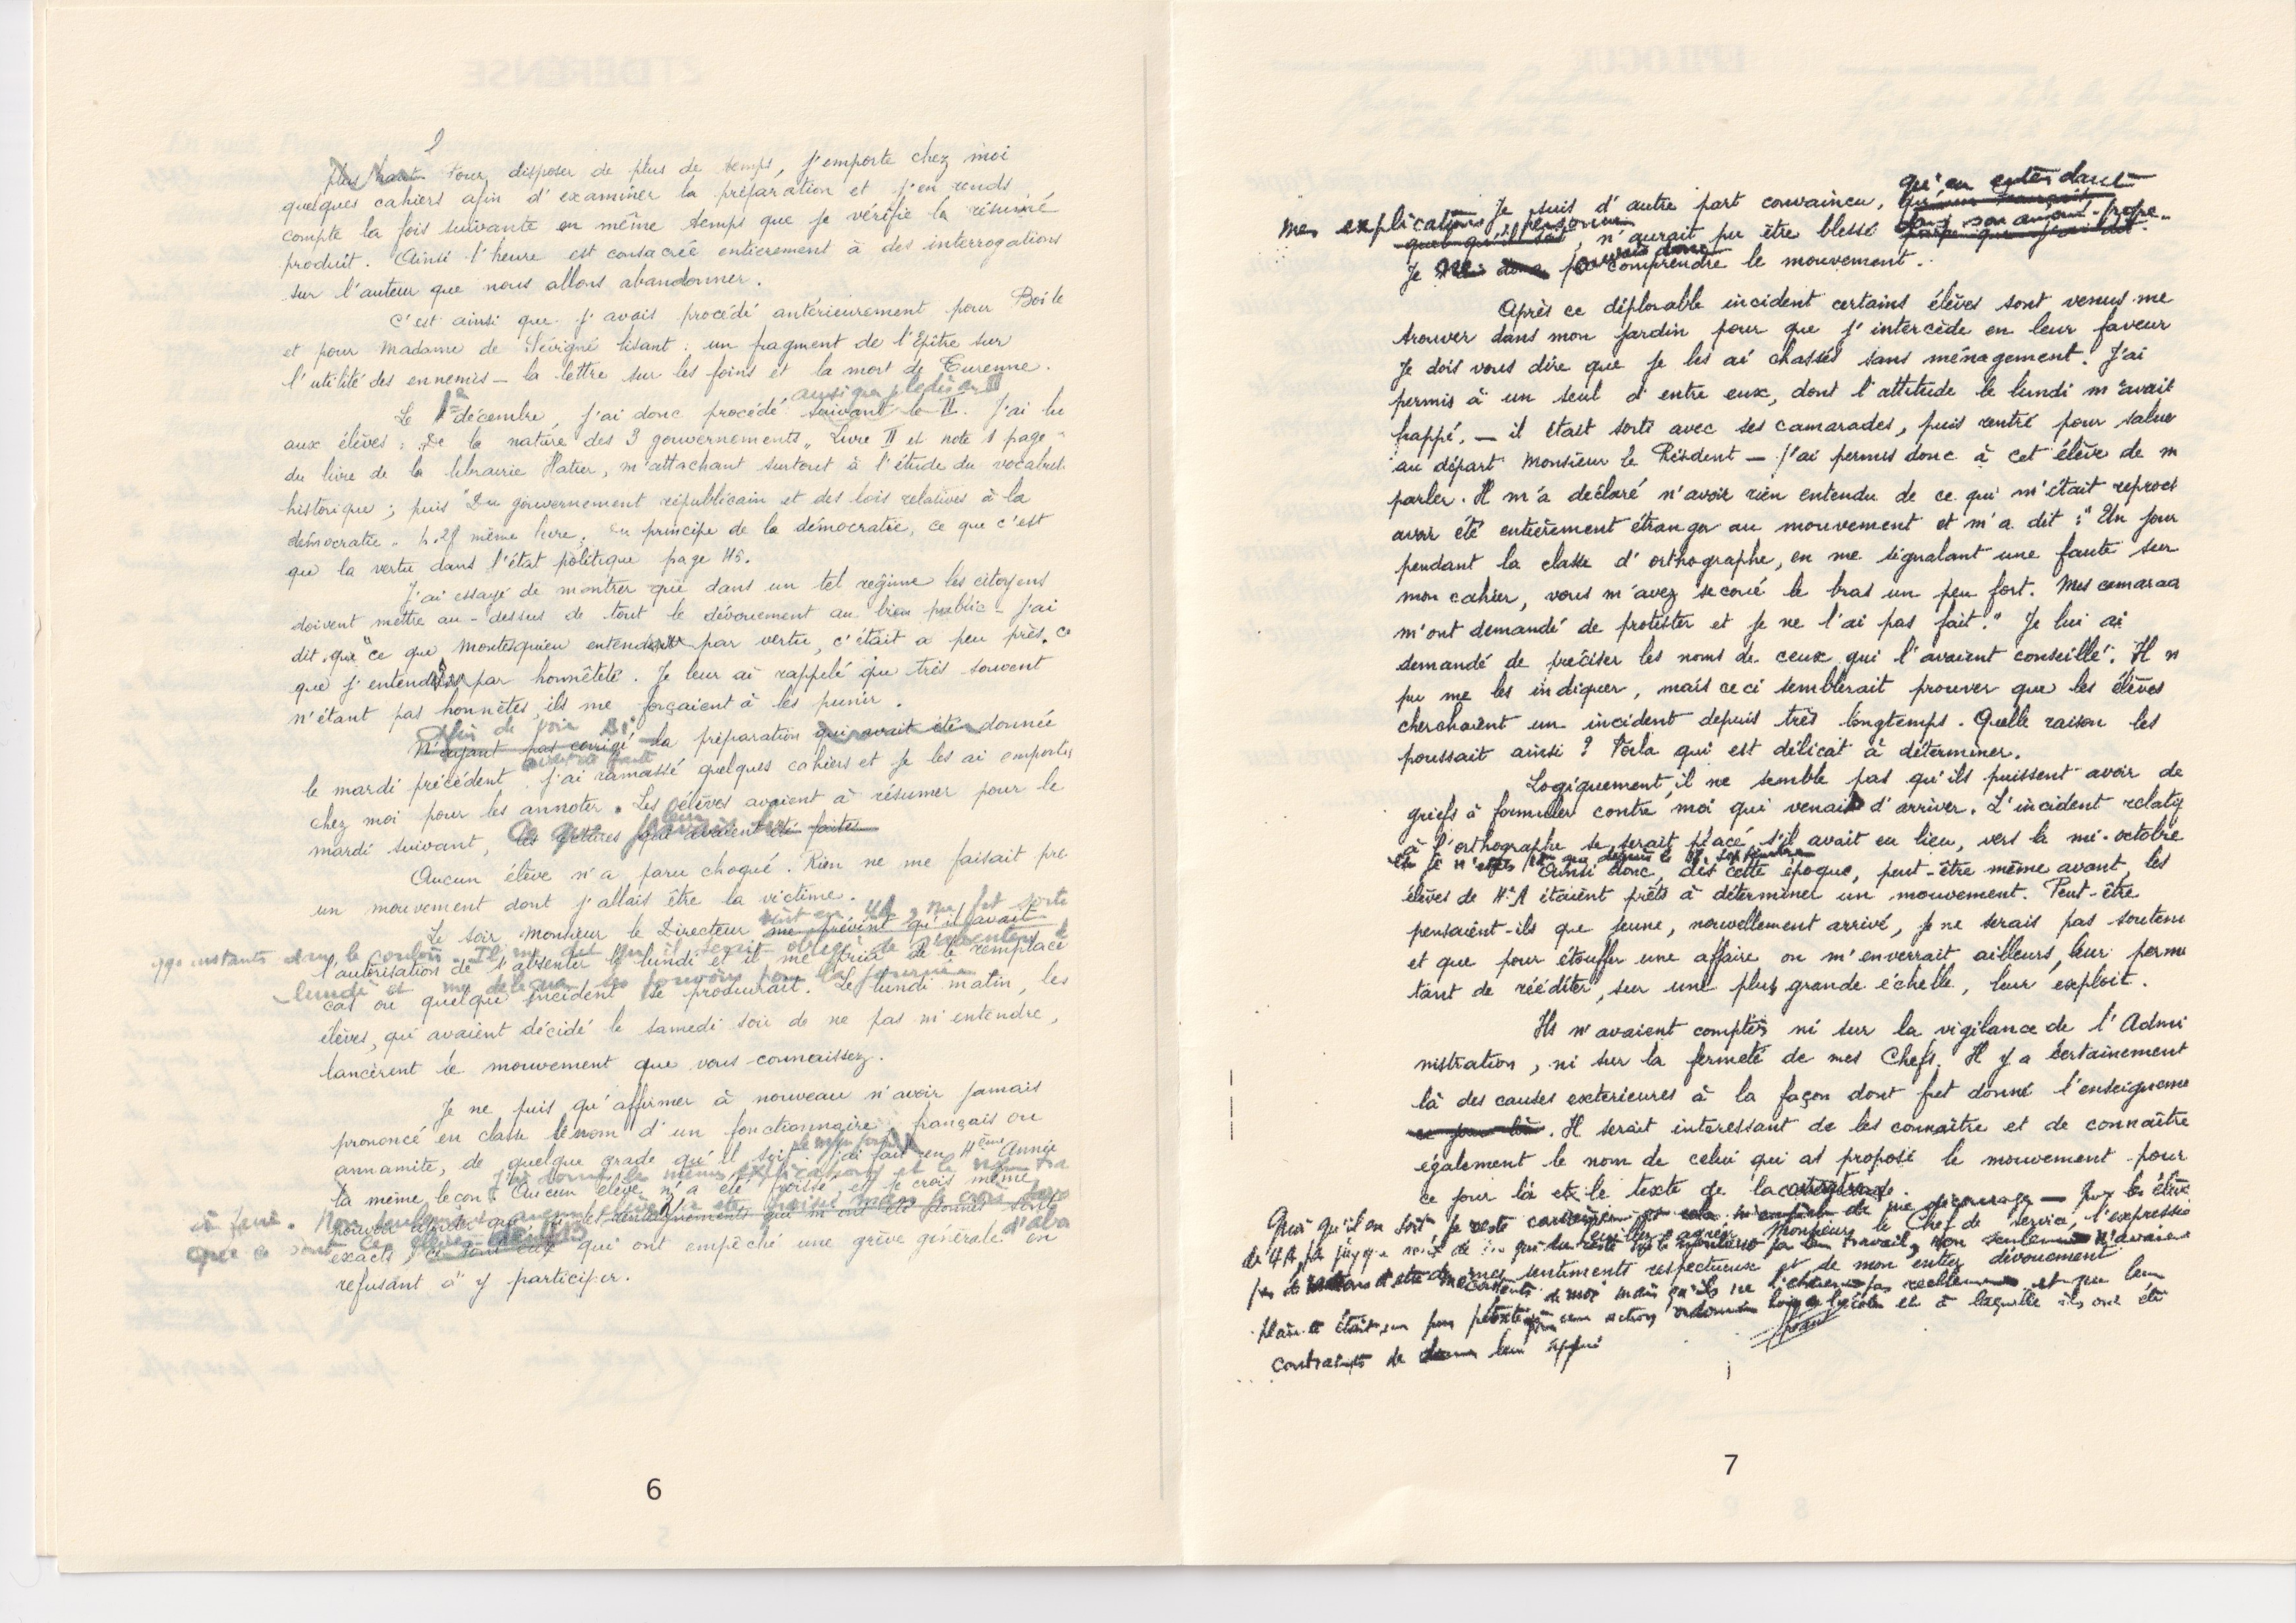 Pour disposer de plus de temps, j'emporte chez moi
quelques cahiers afin d'examiner la préparation et j'en rends
compte la fois suivante en même temps que je vérifie le résumé
produit. Ainsi l'heure est consacrée entièrement à des interrogations
sur l'auteur que nous allons abandonner.
C'est ainsi que j'avais procédé antérieurement pour Boile
et pour Madame de Sévigné lisant : un fragment de l'Epître sur
l'utilité des ennemis — la lettre sur les foins et la mort de Turenne.
Le 1er décembre, j'ai donc procédé suivant le II. J'ai lu
aux élèves : "De la nature des 3 gouvernements" Livre II et note 1 page
du livre de la librairie Hatier, m'attachant surtout à l'étude du vocabul.
historique ; puis "Du gouvernement républicain et des lois relatives à la
démocratie" même livre, principe de la démocratie, ce que c'est
que la vertu dans l'état politique page 45.
J'ai essayé de montrer que dans un tel régime les citoyens
doivent mettre au-dessus de tout le dévouement au bien public - J'ai
dit que "ce que Montesquieu entend par vertu, c'était à peu près ce
que j'entendais par honnêteté. Je leur ai rappelé que très souvent
n'étant pas honnêtes, ils me forçaient à les punir.
Afin de voir si
N'ayant pas corrigé la préparation qui avait été donnée
le mardi précédent j'ai ramassé quelques cahiers et je les ai emportés
chez moi pour les annoter. Les élèves avaient à résumer pour le
mardi suivant, les lectures qui avaient été faites
Aucun élève n'a paru choqué. Rien ne me faisait pré
un mouvement dont j'allais être la victime.
Le soir Monsieur le Directeur me prévint qu'il avait
l'autorisation de s'absenter le lundi et il me pria de le remplacer
lundi et me délégua ses pouvoirs pour la journée
cas où quelque incident se produirait. Le lundi matin, les
élèves, qui avaient décidé le samedi soir de ne pas m'entendre,
lancèrent le mouvement que vous connaissez.
Je ne puis qu'affirmer à nouveau n'avoir jamais
prononcé en classe le nom d'un fonctionnaire français ou
annamite, de quelque grade qu'il soit. J'ai fait en 4ème Année
la même leçon. Aucun élève n'a été froissé et je crois même
pouvoir ajouter que si les renseignements qui m'ont été donnés sont
exacts, ce sont eux qui ont empêché une grève générale en
refusant d'y participer.
6
qu'en entendant
Je suis d'autre part convaincu,
mes explications personne
quel qu'il soit, n'aurait pu être blessé dans son amour-propre
Je ne pouvais donc comprendre le mouvement.
Après ce déplorable incident certains élèves sont venus me
trouver dans mon jardin pour que j'intercède en leur faveur
Je dois vous dire que je les ai chassés sans ménagement. J'ai
permis à un seul d'entre eux, dont l'attitude le lundi m'avait
frappé, — il était sorti avec ses camarades, puis rentré pour salue
au départ Monsieur le Résident — j'ai permis donc à cet élève de m
parler. Il m'a déclaré n'avoir rien entendu de ce qui m'était reproc
avoir été entièrement étranger au mouvement et m'a dit : "Un jour
pendant la classe d'orthographe, en me signalant une faute sur
mon cahier, vous m'avez secoué le bras un peu fort. Mes camarad
m'ont demandé de protester et je ne l'ai pas fait." Je lui ai
demandé de préciser les noms de ceux qui l'avaient conseillé. Il n
pu me les indiquer, mais ceci semblerait prouver que les élèves
cherchaient un incident depuis très longtemps. Quelle raison les
poussait ainsi ? Voilà qui est délicat à déterminer.
Logiquement, il ne semble pas qu'ils puissent avoir de
griefs à formuler contre moi qui venais d'arriver. L'incident relatif
à l'orthographe se serait placé, s'il avait eu lieu, vers la mi-octobre
Ainsi donc, dès cette époque, peut-être même avant, les
élèves de 4e A étaient prêts à déterminer un mouvement. Peut-être
pensaient-ils que jeune, nouvellement arrivé, je ne serais pas soutenu
et que pour étouffer une affaire on m'enverrait ailleurs, leur perme
tant de rééditer, sur une plus grande échelle, leur exploit.
Ils n'avaient compté ni sur la vigilance de l'Admi
nistration, ni sur la fermeté de mes Chefs. Il y a certainement
là des causes extérieures à la façon dont fut donné l'enseigneme
ce jour là. Il serait intéressant de les connaître et de connaître
également le nom de celui qui a proposé le mouvement pour
ce jour là et le texte de la
Quoi qu'il en soit je reste convaincu me décourager — que les élèv
agréer Monsieur le Chef de service, l'expressio
travail, non seulement n'avaie
mes sentiments respectueux et de mon entier dévouement
mécontents de moi mais qu'ils ne
plainte était un pur prétexte pour une action et à laquelle ils ont été
contraints de leur appui
7